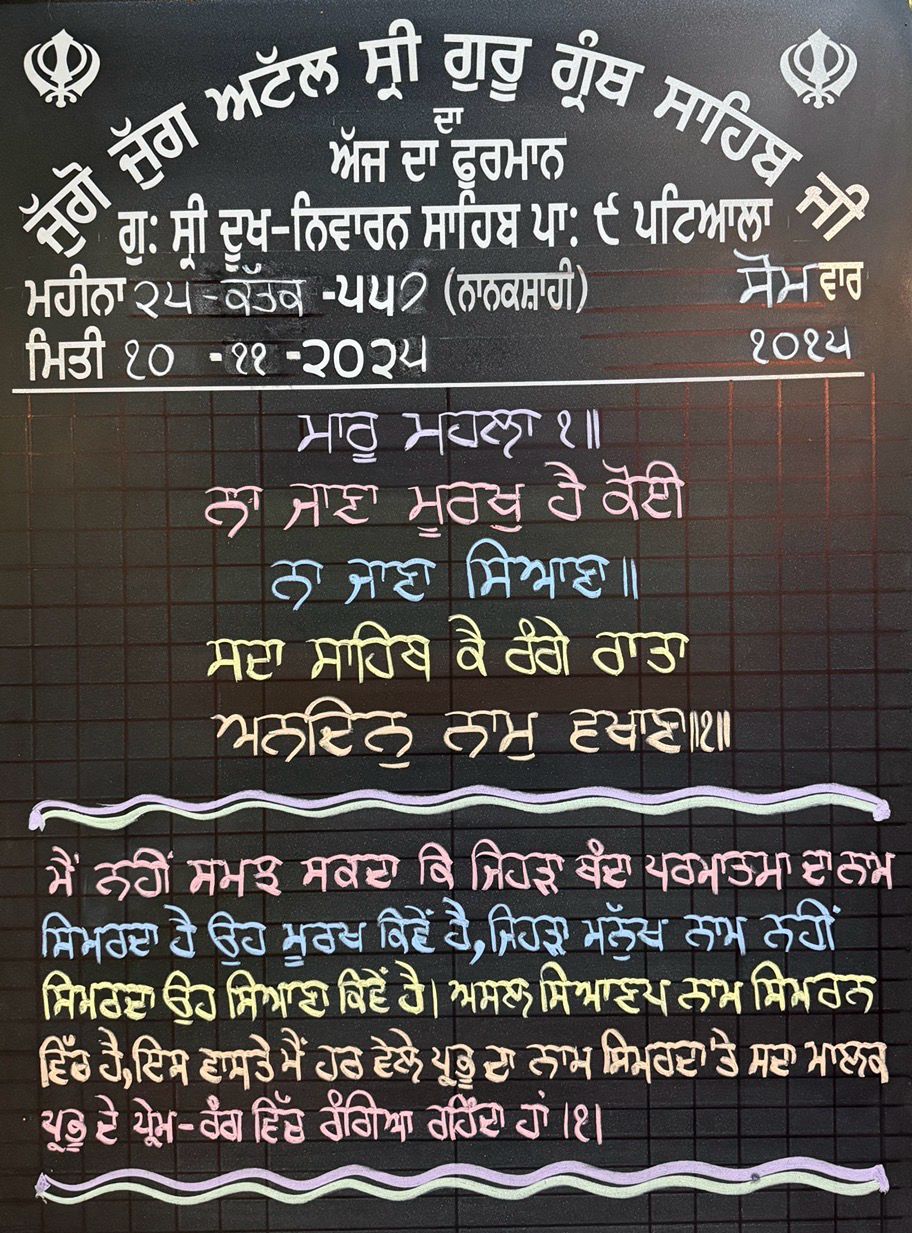 ਜੁੱਗੋ ਜੁੱਗ ਅਟੱਲ ਸ੍ਰੀ ਗੁਰੂ ਗ੍ਰੰਥ ਸਾਹਿਬ ਜੀ
ਦਾ
ਅੱਜ ਦਾ ਫੁਰਮਾਨ
ਗੁ: ਸ੍ਰੀ ਦੂਖ-ਨਿਵਾਰਨ ਸਾਹਿਬ ਪਾ: ੯ ਪਟਿਆਲਾ
ਮਹੀਨਾ ੨੫-ਕੱਤਕ -੫੫੭ (ਨਾਨਕਸ਼ਾਹੀ) ਸੋਮ ਵਾਰ
ਮਿਤੀ ੧੦ -੧੧ -੨੦੨੫ ੧੦੧੫
ਮਾਰੂ ਮਹਲਾ ੧॥
ਨਾ ਜਾਣਾ ਮੂਰਖੁ ਹੈ ਕੋਈ
ਨਾ ਜਾਣਾ ਸਿਆਣਾ॥
ਸਦਾ ਸਾਹਿਬ ਕੈ ਰੰਗੇ ਰਾਤਾ
ਅਨਦਿਨੁ ਨਾਮੁ ਵਖਾਣਾ॥੧॥
ਮੈਂ ਨਹੀਂ ਸਮਝ ਸਕਦਾ ਕਿ ਜਿਹੜਾ ਬੰਦਾ ਪਰਮਾਤਮਾ ਦਾ ਨਾਮ
ਸਿਮਰਦਾ ਹੈ ਉਹ ਮੂਰਖ ਕਿਵੇਂ ਹੈ, ਜਿਹੜਾ ਮਨੁੱਖ ਨਾਮ ਨਹੀਂ
ਸਿਮਰਦਾ ਉਹ ਸਿਆਣਾ ਕਿਵੇਂ ਹੈ। ਅਸਲ ਸਿਆਣਪ ਨਾਮ ਸਿਮਰਨ
ਵਿੱਚ ਹੈ, ਇਸ ਵਾਸਤੇ ਮੈਂ ਹਰ ਵੇਲੇ ਪ੍ਰਭੂ ਦਾ ਨਾਮ ਸਿਮਰਦਾ ਤੇ ਸਦਾ ਮਾਲਕ
ਪ੍ਰਭੂ ਦੇ ਪ੍ਰੇਮ-ਰੰਗ ਵਿੱਚ ਰੰਗਿਆ ਰਹਿੰਦਾ ਹਾਂ।੧।